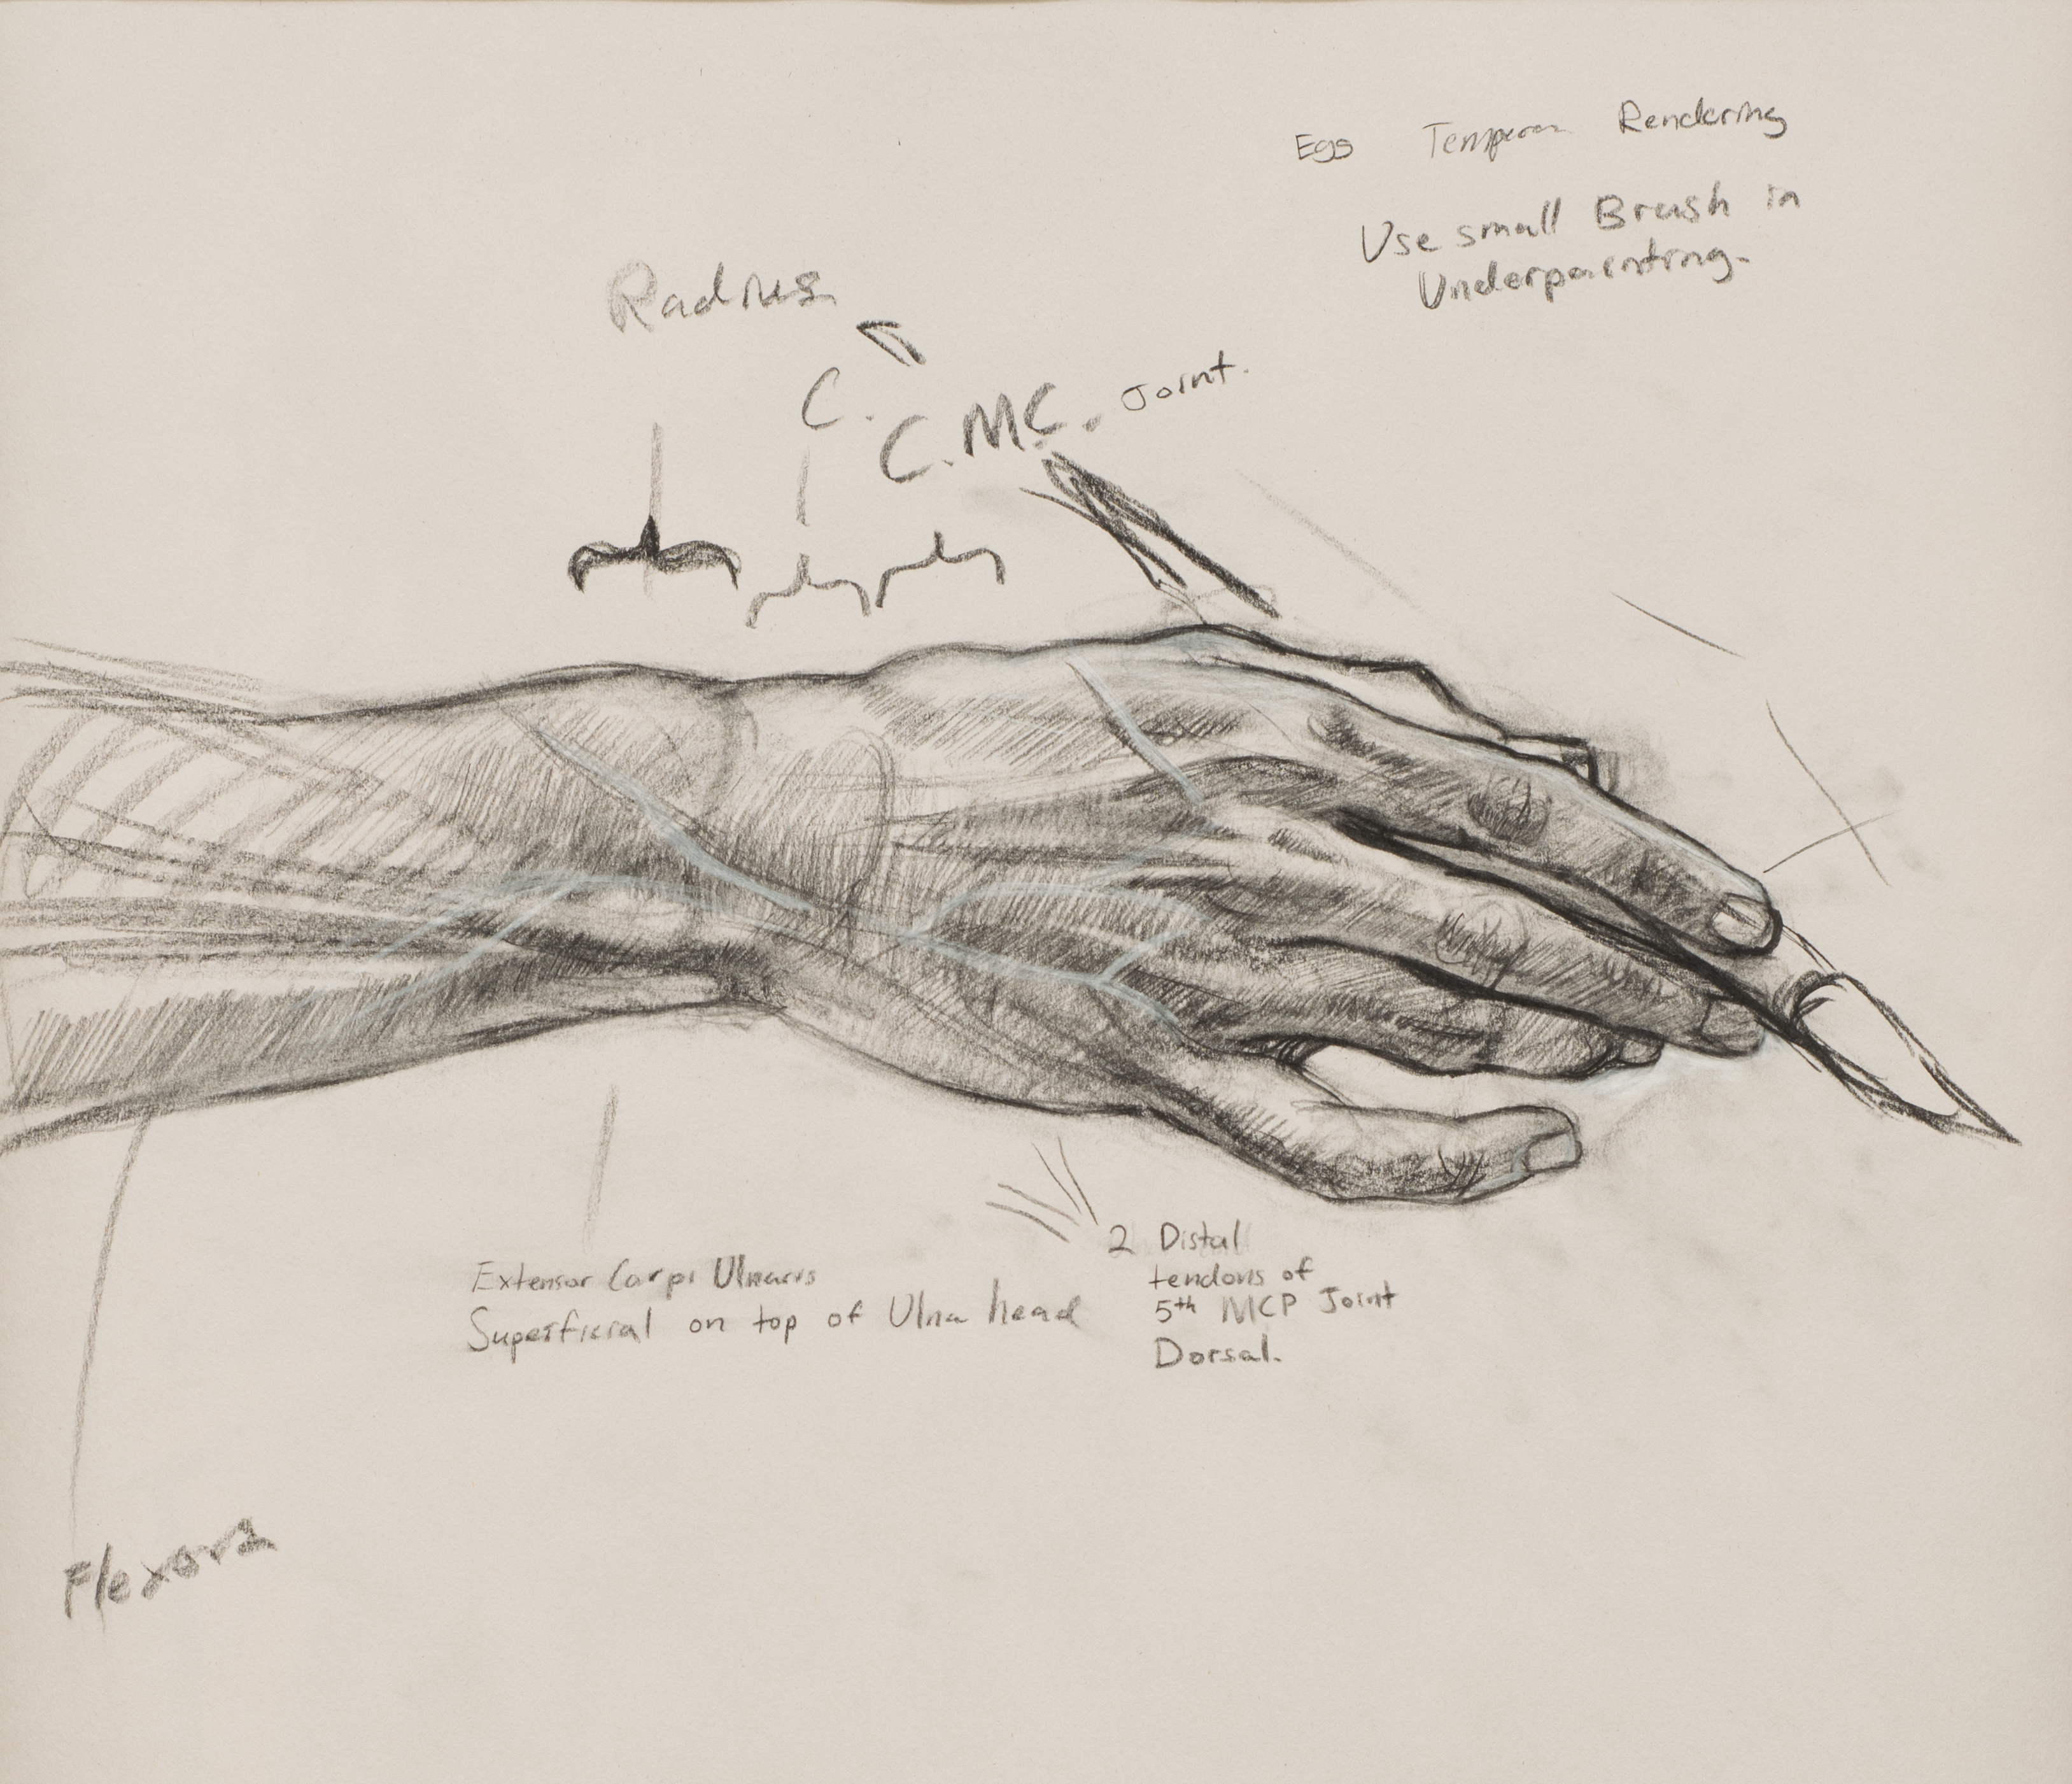 Egg Tempera Rendering
Use small Brush in
Underpainting.
Radius
C.
C.MC. Joint.
Extensor Carpi Ulnaris
Superficial on top of Ulna head
2 Distal
tendons of
5th MCP Joint
Dorsal.
Flexors